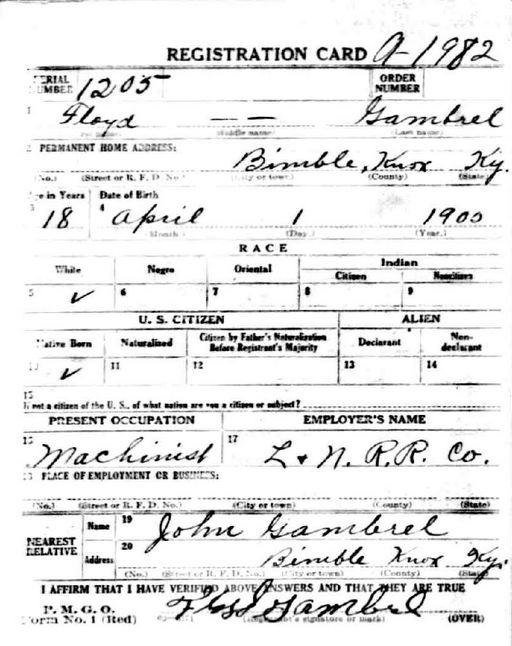 REGISTRATION CARD A-1982
SERIAL NUMBER 1205 ORDER NUMBER
1 Floyd — — Gambrel
(First name) (Middle name) (Last name)
2 PERMANENT HOME ADDRESS:
Bimble, Knox Ky.
(No.) (Street or R. F. D. No.) (City or town) (County) (State)
Age in Years Date of Birth
3 18 4 April 1 1900
(Month) (Day.) (Year.)
RACE
White Negro Oriental Indian
Citizen Noncitizen
5 ✓ 6 7 8 9
U. S. CITIZEN ALIEN
Native Born Naturalized Citizen by Father's Naturalization Before Registrant's Majority Declarant Non-declarant
10 ✓ 11 12 13 14
15
If not a citizen of the U. S., of what nation are you a citizen or subject?
PRESENT OCCUPATION EMPLOYER'S NAME
16 Machinist 17 L & N. R.R. Co.
18 PLACE OF EMPLOYMENT OR BUSINESS:
(No.) (Street or R. F. D. No.) (City or town) (County) (State)
NEAREST RELATIVE Name 19 John Gambrel
Address 20 Bimble Knox Ky.
(No.) (Street or R. F. D. No.) (City or town) (County) (State)
I AFFIRM THAT I HAVE VERIFIED ABOVE ANSWERS AND THAT THEY ARE TRUE
P. M. G. O.
Form No. 1 (Red) Floyd Gambrel
(Registrant's signature or mark) (OVER)